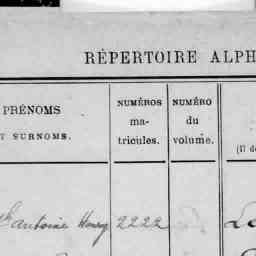 RÉPERTOIRE ALPH
PRÉNOMS
T SURNOMS.
NUMÉROS
ma-
tricules.
NUMÉRO
du
volume.
(Il d
Antoine Henry 2222